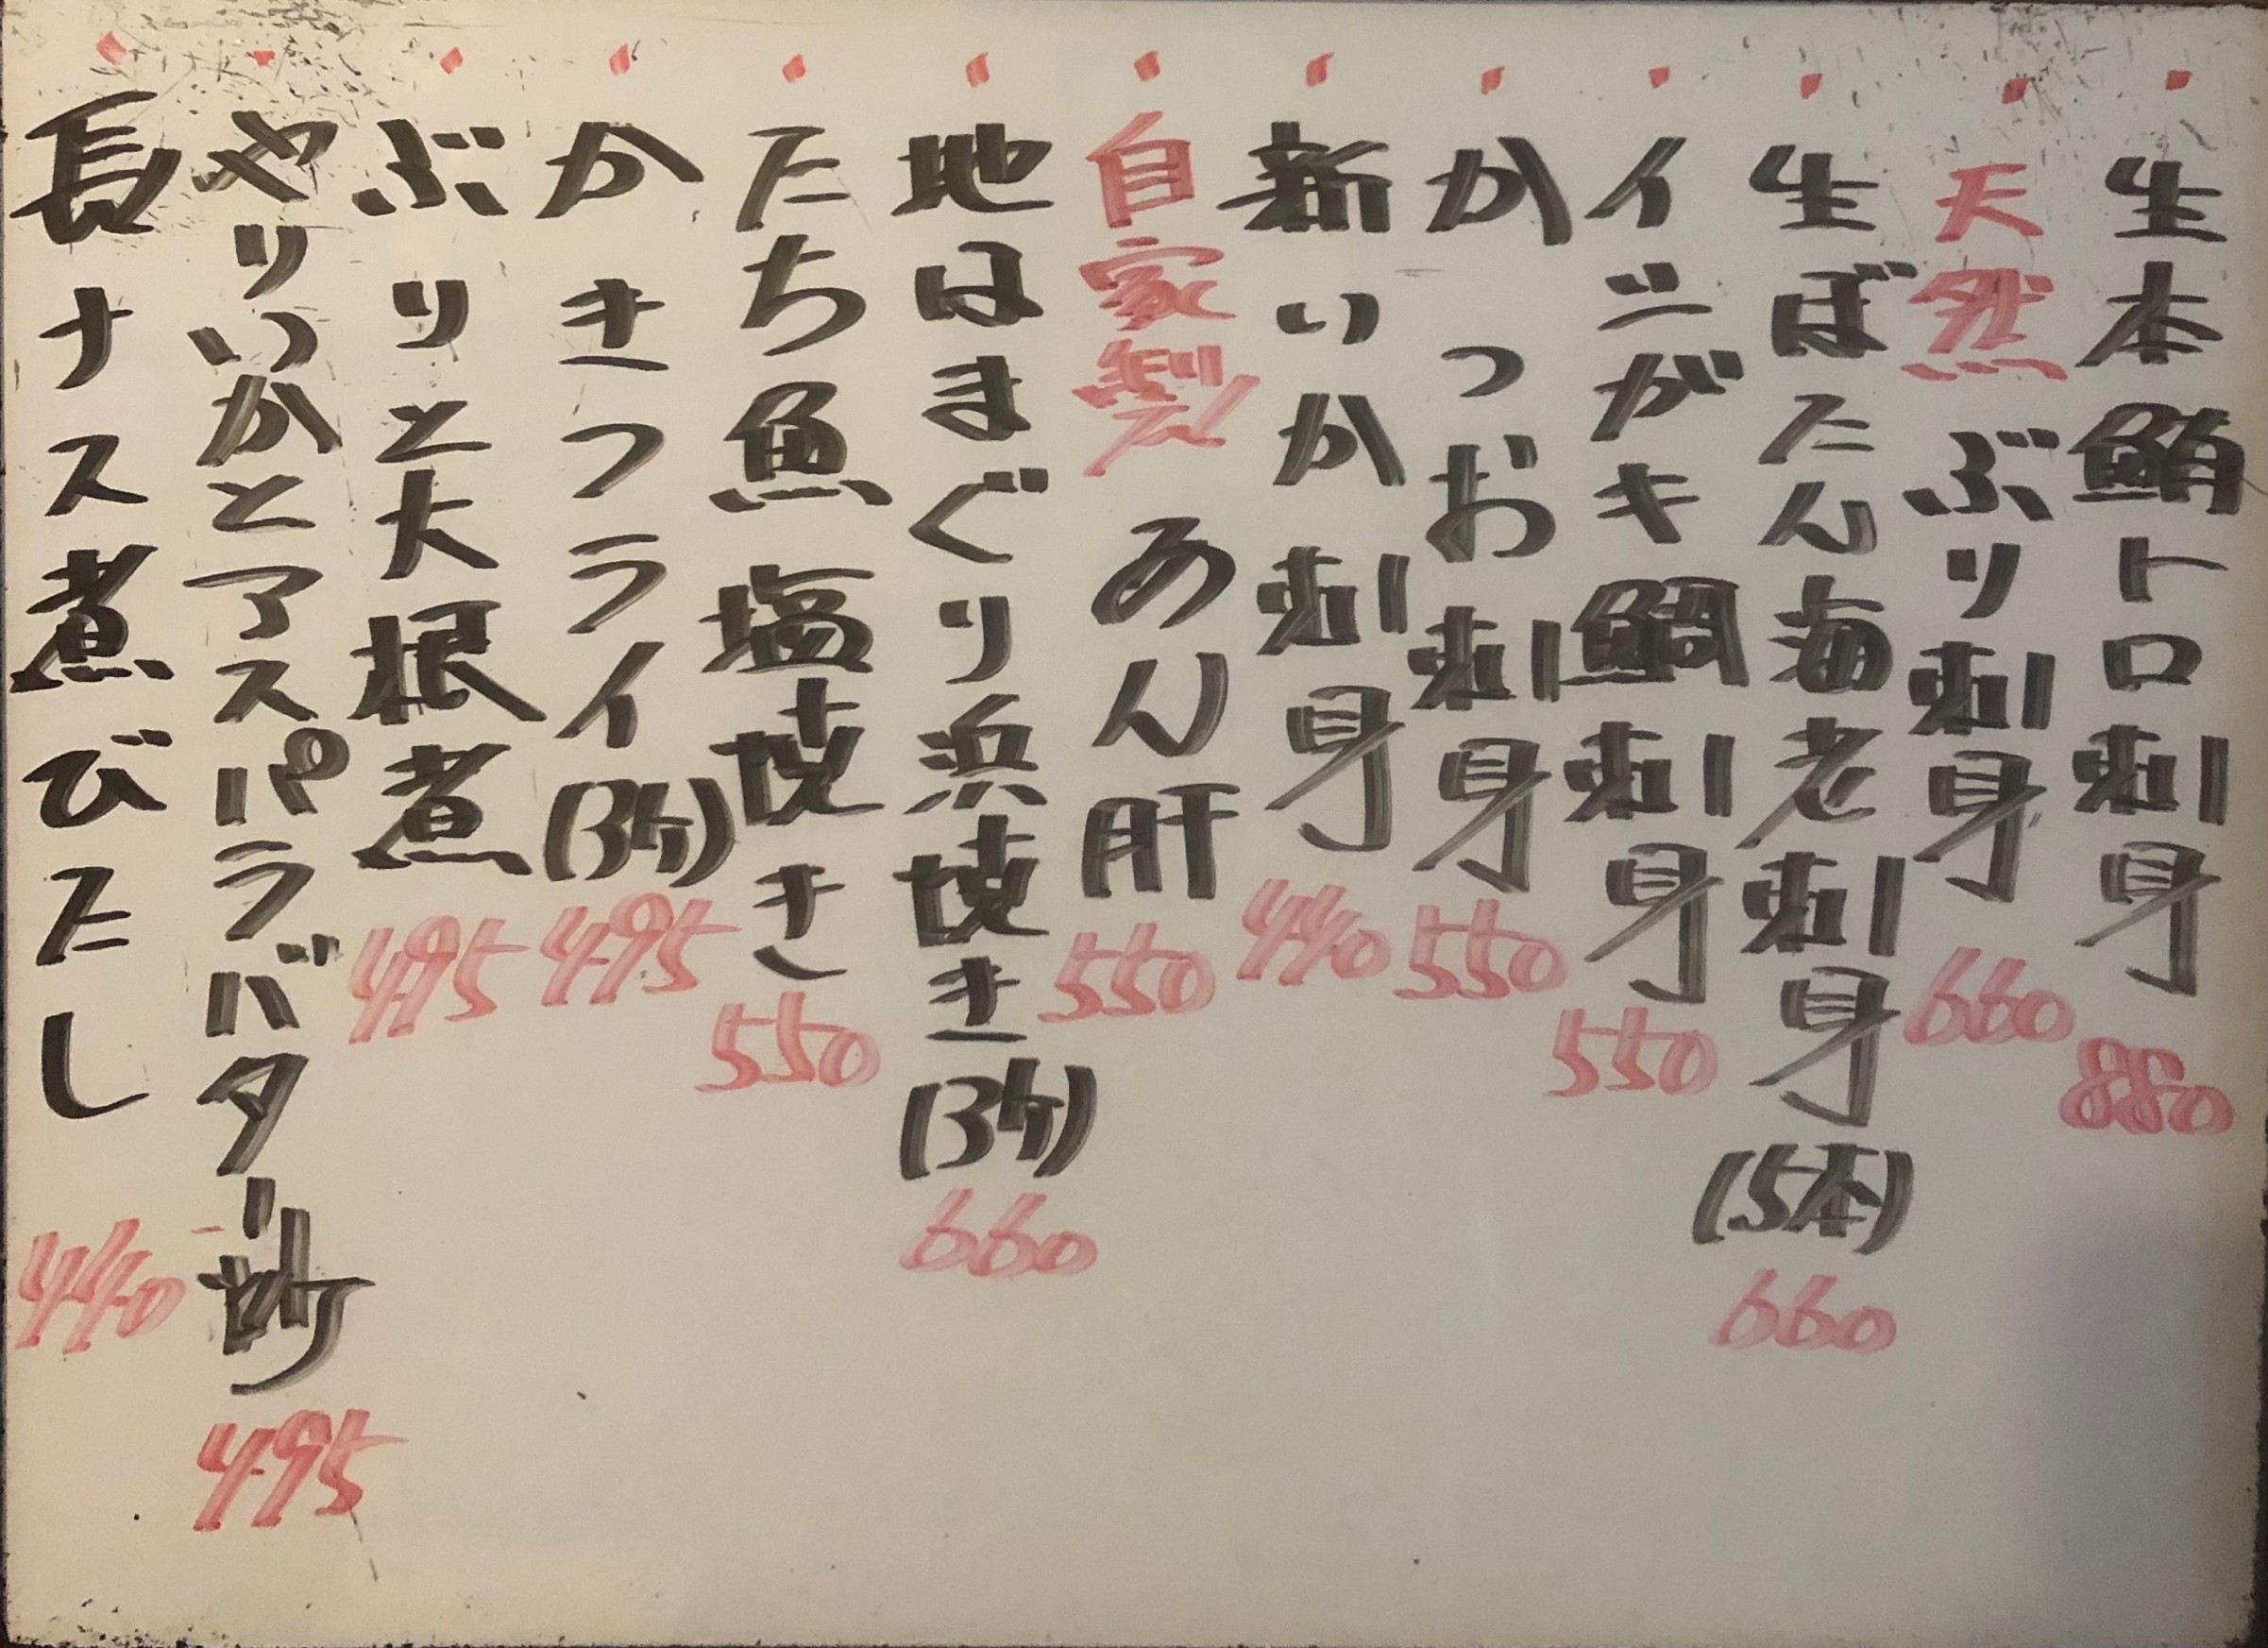 ・生本鮪トロ刺身 880
・天然 ぶり刺身 660
・生ぼたん海老刺身(5本) 660
・イシガキ鯛刺身 550
・かつお刺身 550
・新いか刺身 440
・自家製 あん肝 550
・地はまぐり浜焼き(3ケ) 660
・たち魚塩焼き 550
・かきフライ(3ケ) 495
・ぶりと大根煮 495
・やりいかとアスパラバター炒 495
・長ナス煮びたし 440